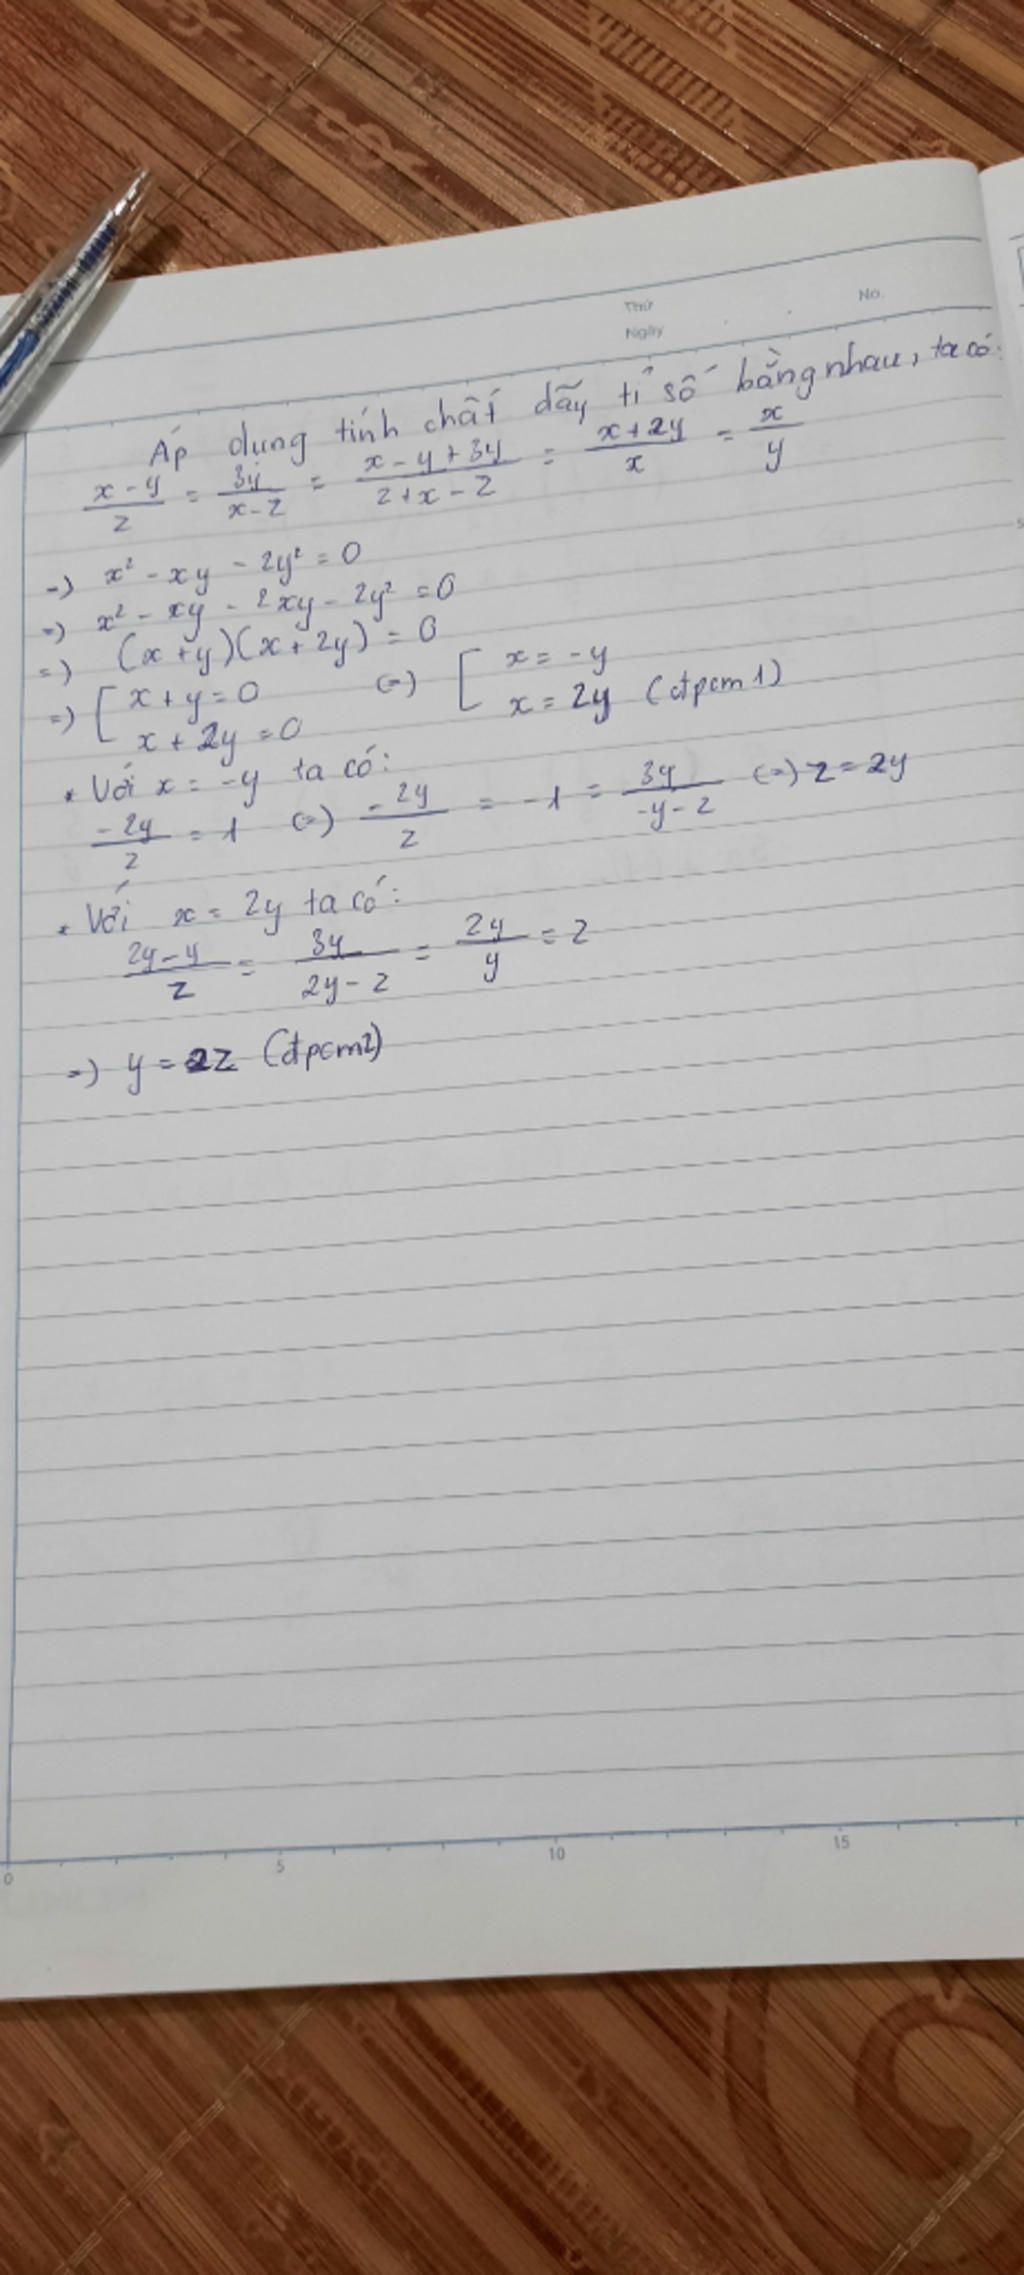 Thứ
No.
Ngày
Áp dụng tính chất dãy tỉ số bằng nhau, ta có:
x-y/z = 3y/x-z = x-y+3y/z+x-z = x+2y/x = x/y
=) x² - xy - 2y² = 0
=) x² - xy - 2xy - 2y² = 0
=) (x+y)(x+2y) = 0
=) [ x+y=0 (=) [ x = -y
x+2y=0 x = 2y (đpcm1)
* Với x = -y ta có:
-2y/z = 1 (=) -2y/z = -1 = 3y/-y-z (=) z = 2y
* Với x = 2y ta có:
2y-y/z = 3y/2y-z = 2y/y = 2
=) y = 2z (đpcm2)
0 5 10 15